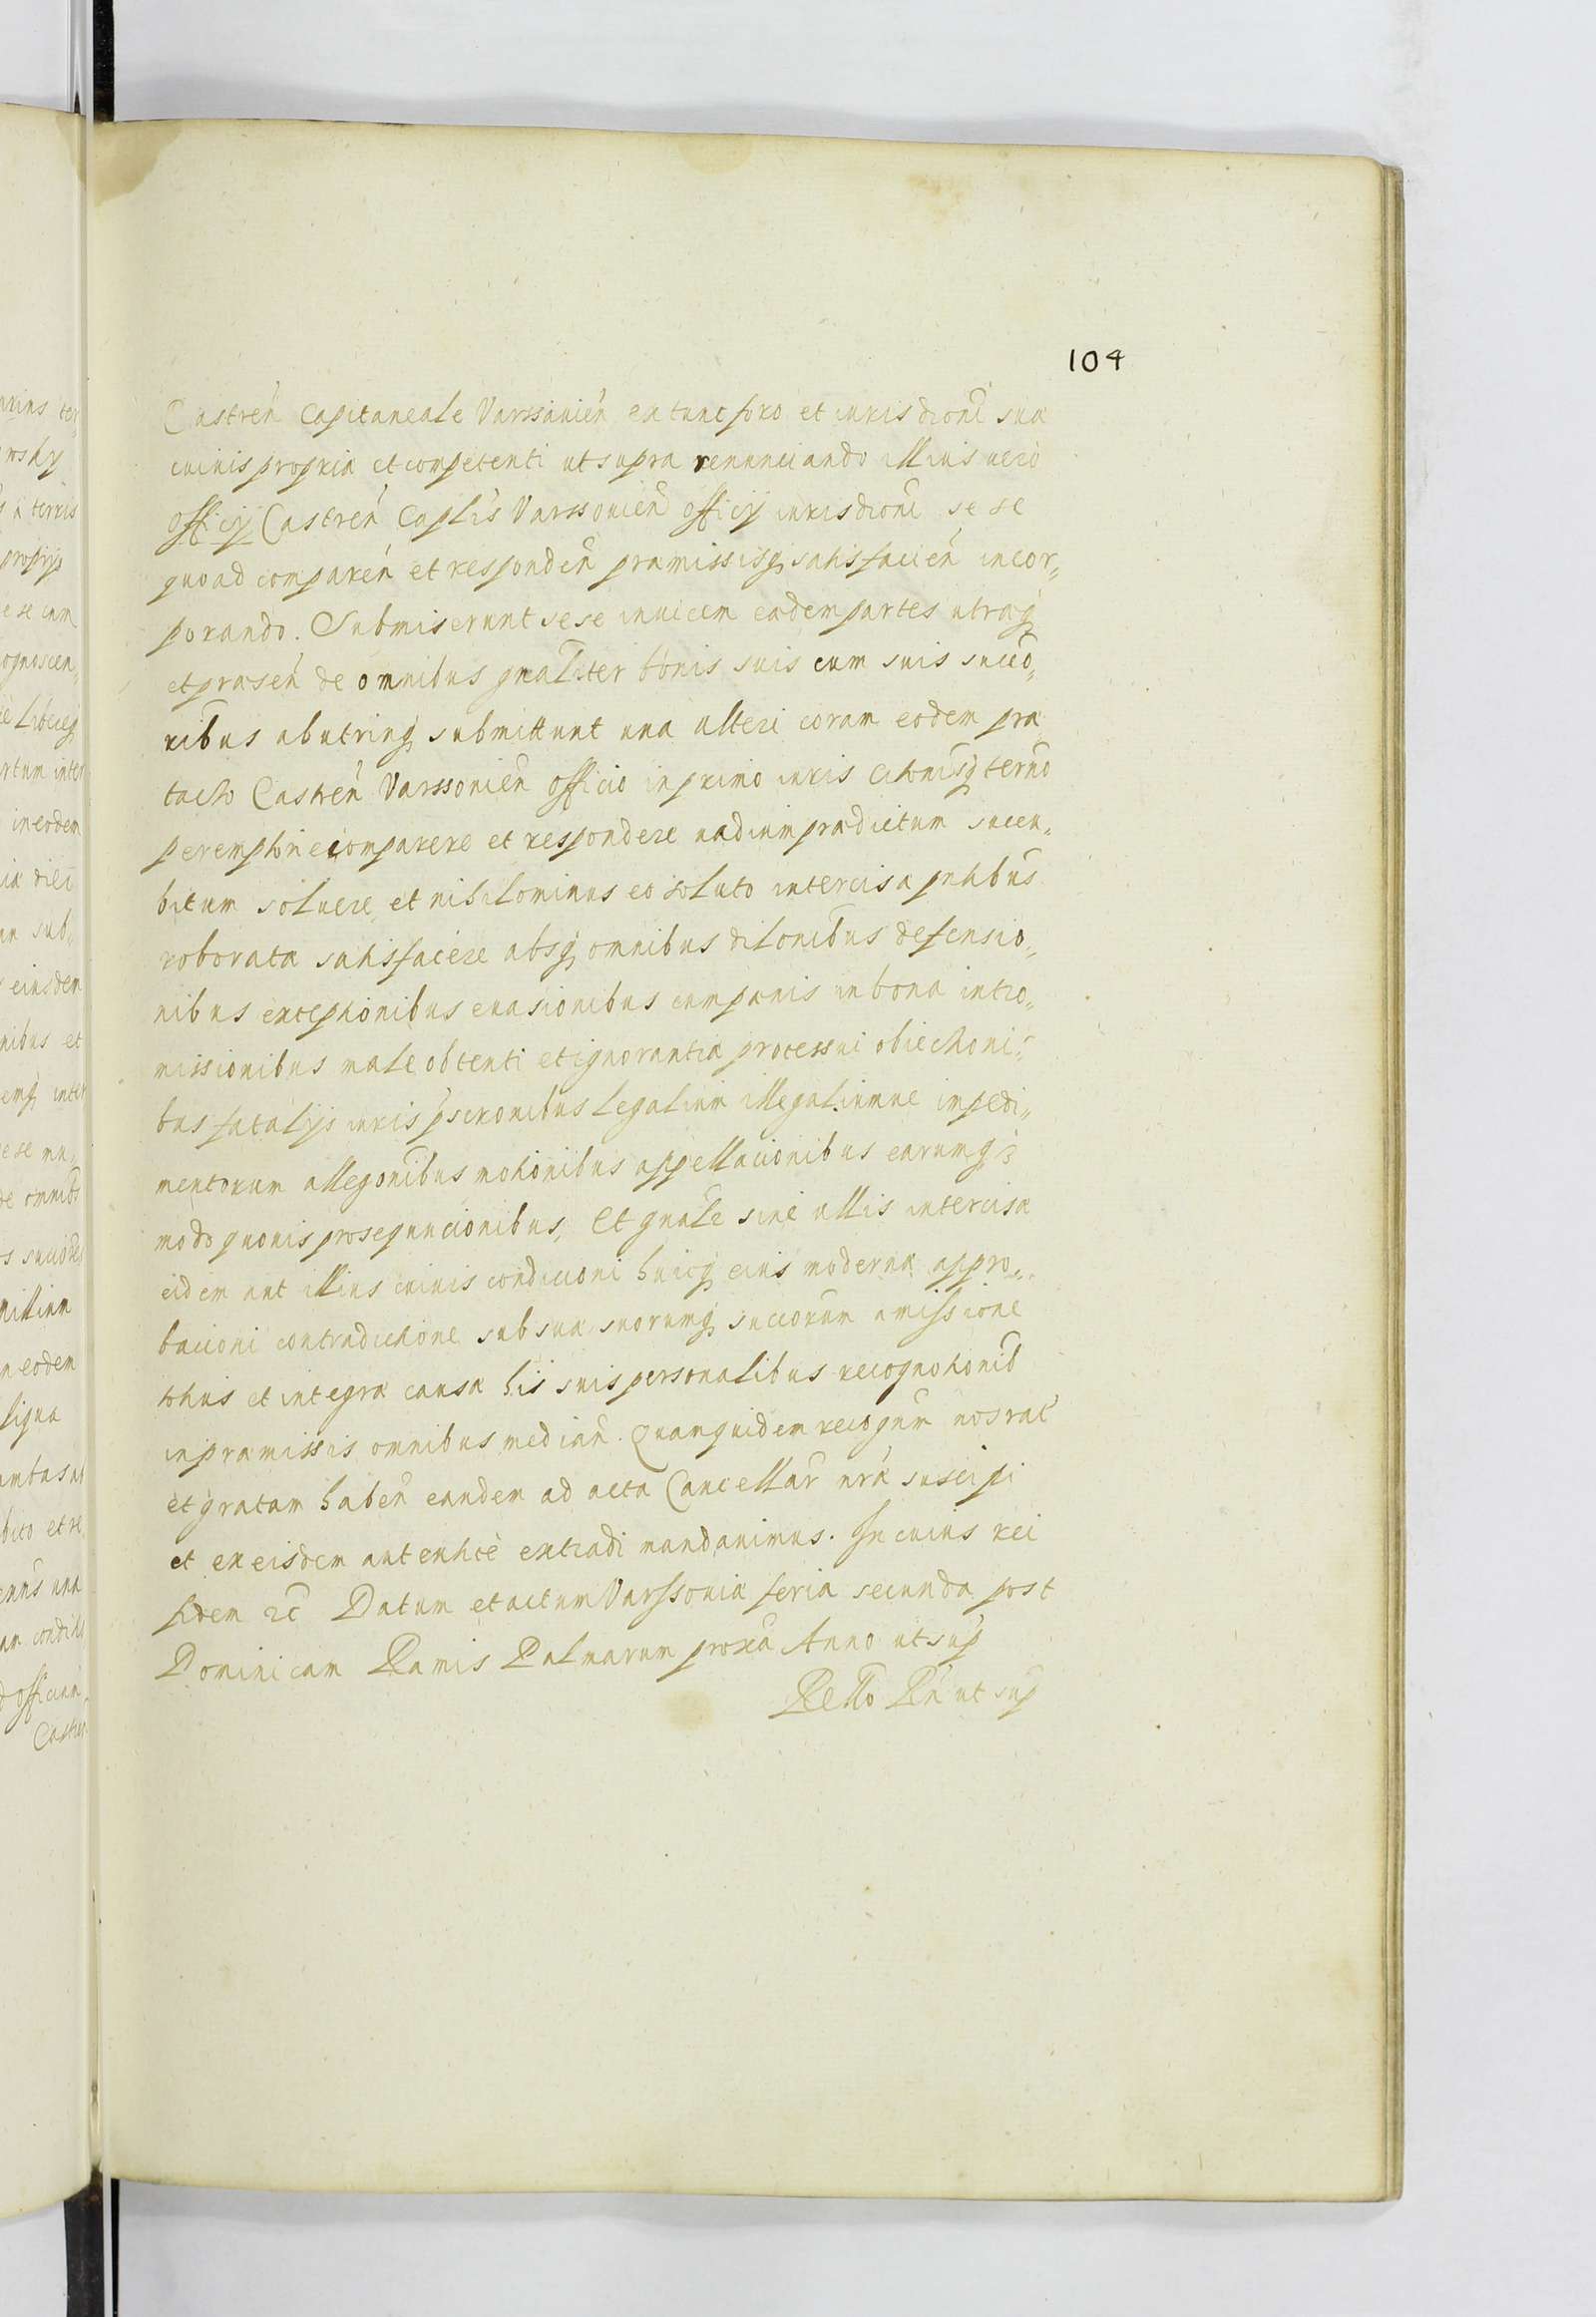 104
Castreń Capitaneale Varssauień ex tunc foro et iurisdioni sua
cuiuis propria et competenti ut supra renunciando illius uero
officij Castreń Caplis Varssouień officij iurisdioni se se
quoad comparen et responden præmissisq satisfacień incor„
porando. Submiserunt sese inuicem eædem partes utraq
et præseń de omnibus gnaliter bonis suis cum suis succo„
ribus ab utrinq submittunt una alteri coram eodem præ
tacto Castreń Varssouień officio in primo iuris citonisq termo
peremptorie comparere et respondere uadium prædictum succu„
bitum soluere, et nihilominus eo soluto intercisæ pntibus
roboratæ satisfacere absq omnibus dilonibus defensio„
nibus exceptionibus euasionibus cum panis in bona intro„
missionibus male obtenti et ignorantiæ processui obiectioni„
bus fatalijs iuris pscronibus legalium illegaliumue impedi„
mentorum allegonibus motionibus appellacionibus earumq
modo quouis prosequucionibus, Et gnale sine ullis intercisæ
eidem aut illius cuiuis condicioni huicq eius modernæ appro„
bacioni contradictione sub sua suorumq succorum amissione
totius et integræ causæ his suis personalibus recognotionib
in præmissis omnibus median. Quamquidem recognm nos rat
et gratam haben eandem ad acta Cancellar nræ suscipi
et ex eisdem autentice extradi mandauimus. In cuius rei
fidem 2c Datum et actum Varssouiæ feria secunda post
Dominicam Ramis Palmarum proxa Anno ut sup
Rello Rn ut sup